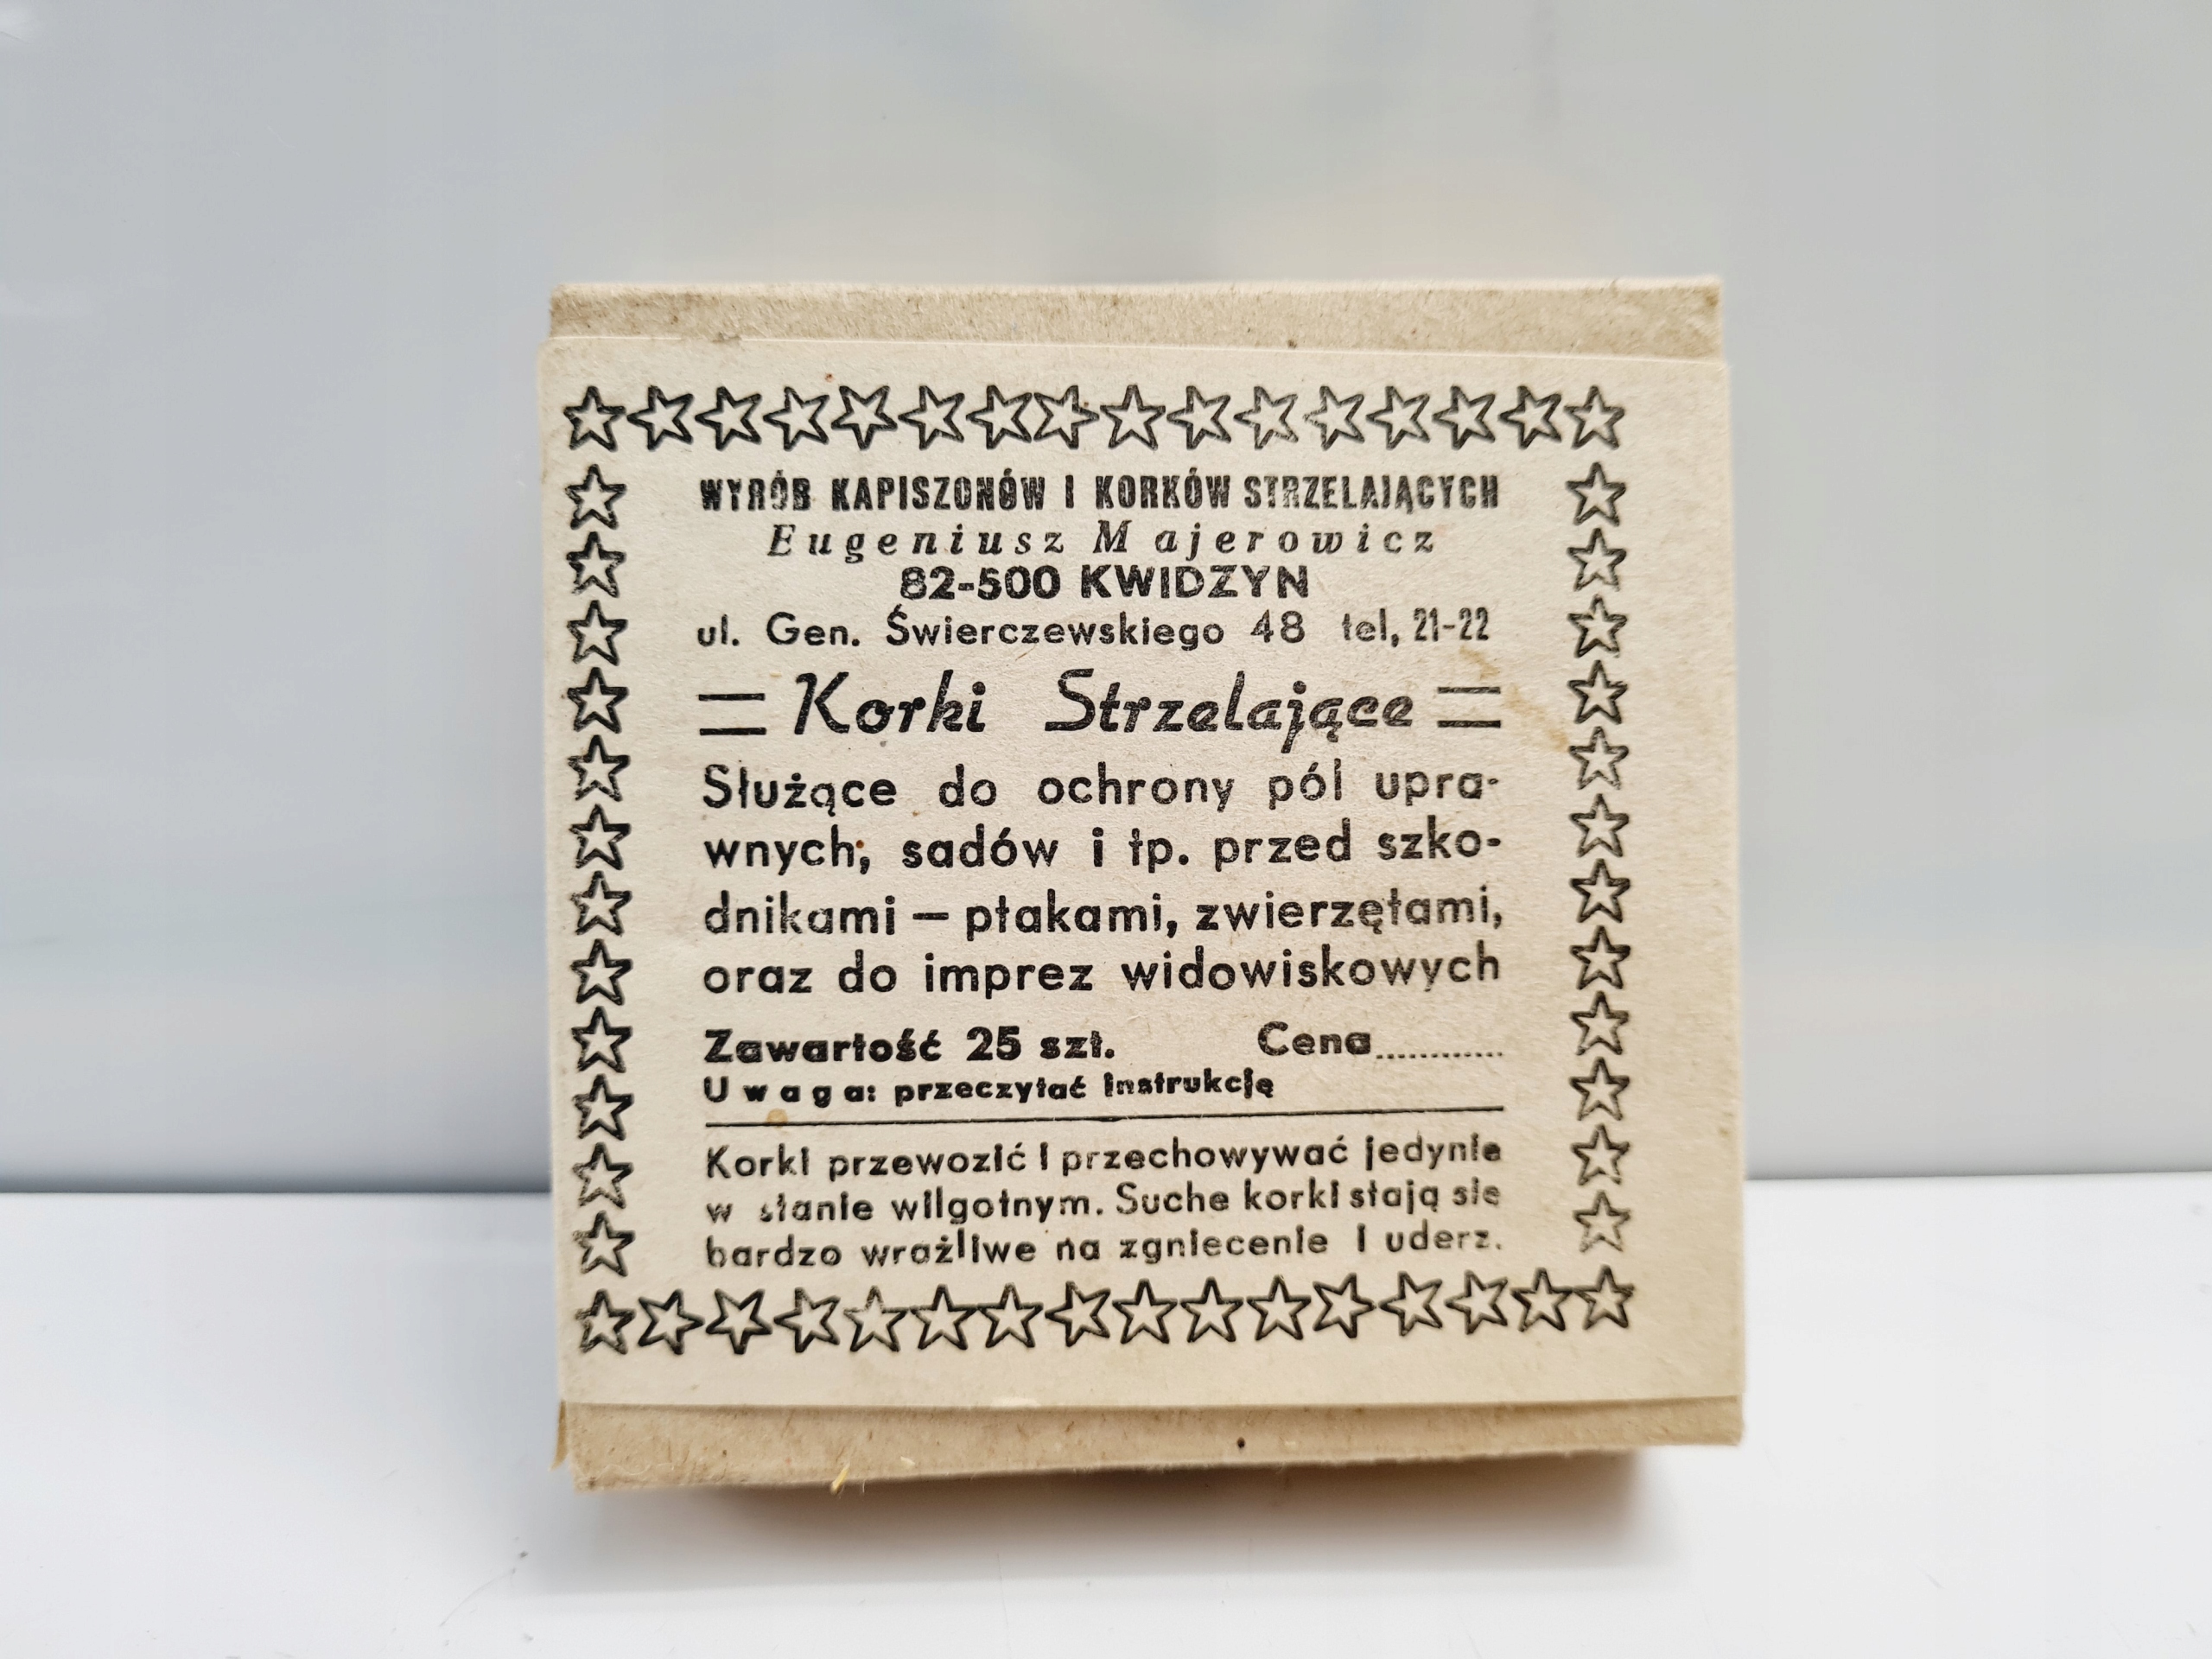 WYRÓB KAPISZONÓW I KORKÓW STRZELAJĄCYCH
Eugeniusz Majerowicz
82-500 KWIDZYN
ul. Gen. Świerczewskiego 48 tel, 21-22
= Korki Strzelające =
Służące do ochrony pól upra-
wnych, sadów i tp. przed szko-
dnikami — ptakami, zwierzętami,
oraz do imprez widowiskowych
Zawartość 25 szt. Cena............
Uwaga: przeczytać instrukcję
Korki przewozić i przechowywać jedynie
w stanie wilgotnym. Suche korki stają się
bardzo wrażliwe na zgniecenie i uderz.